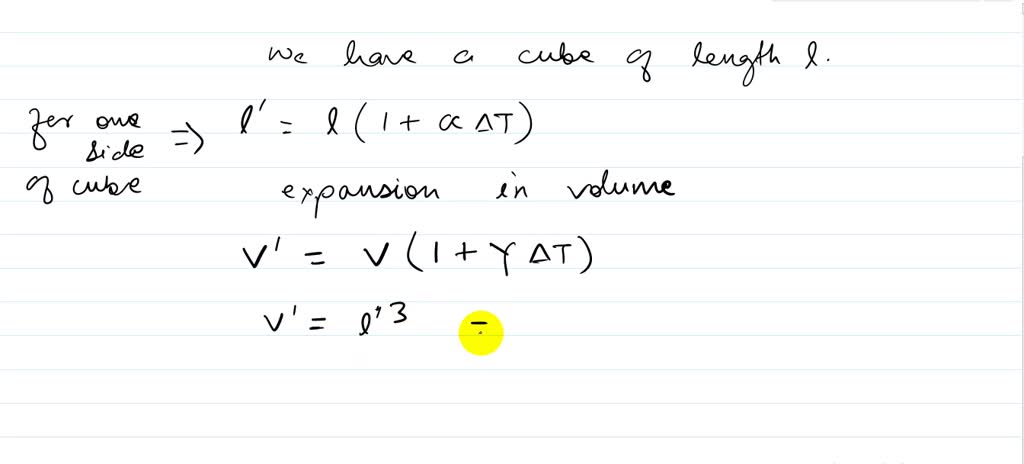 We have a cube of length l.
for one side of cube => l' = l (1 + α ΔT)
expansion in volume
V' = V (1 + γ ΔT)
V' = l'3 =